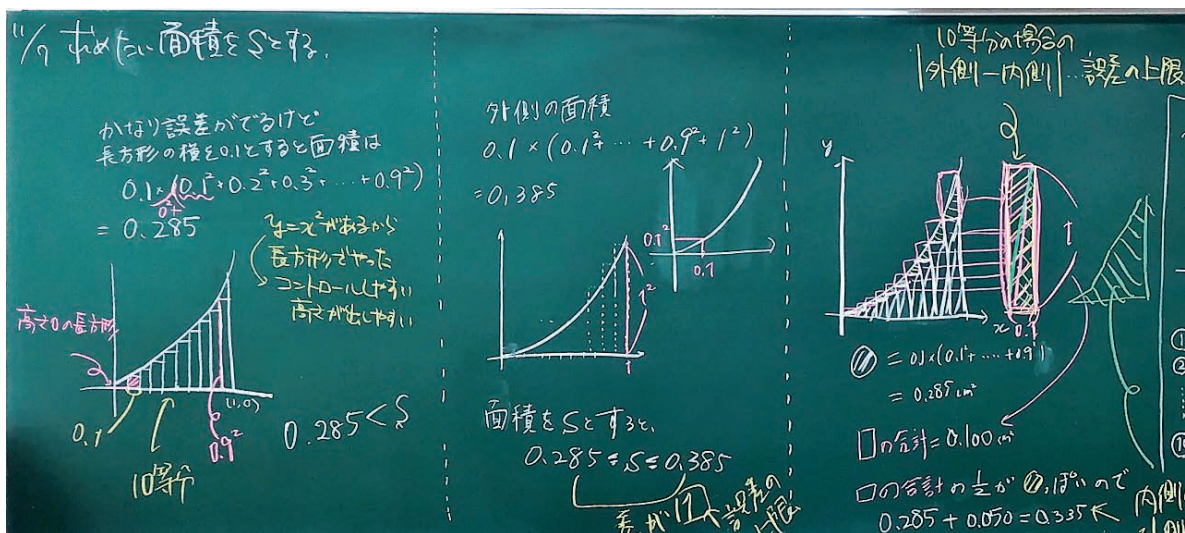 11/7 求めたい面積をSとする.
かなり誤差がでるけど
長方形の横を0.1とすると面積は
0.1×(0.1²+0.2²+0.3²+……+0.9²)
0²+
=0.285
y=x²があるから
長方形でやった
コントロールしやすい
高さが出しやすい
高さ0の長方形
(1,0)
0.1
0.9²
10等分
0.285<S
外側の面積
0.1×(0.1²+……+0.9²+1²)
=0.385
0.1²
0.1
1²
1
面積をSとすると,
0.285≦S≦0.385
差が
誤差の
上限
10等分の場合の
|外側ー内側|…誤差の上限
y
1
x
0.1
=0.1×(0.1²+……+0.9²)
=0.285cm²
□の合計=0.100cm²
□の合計の1/2が ぽいので
0.285+0.050=0.335
内側
①
②